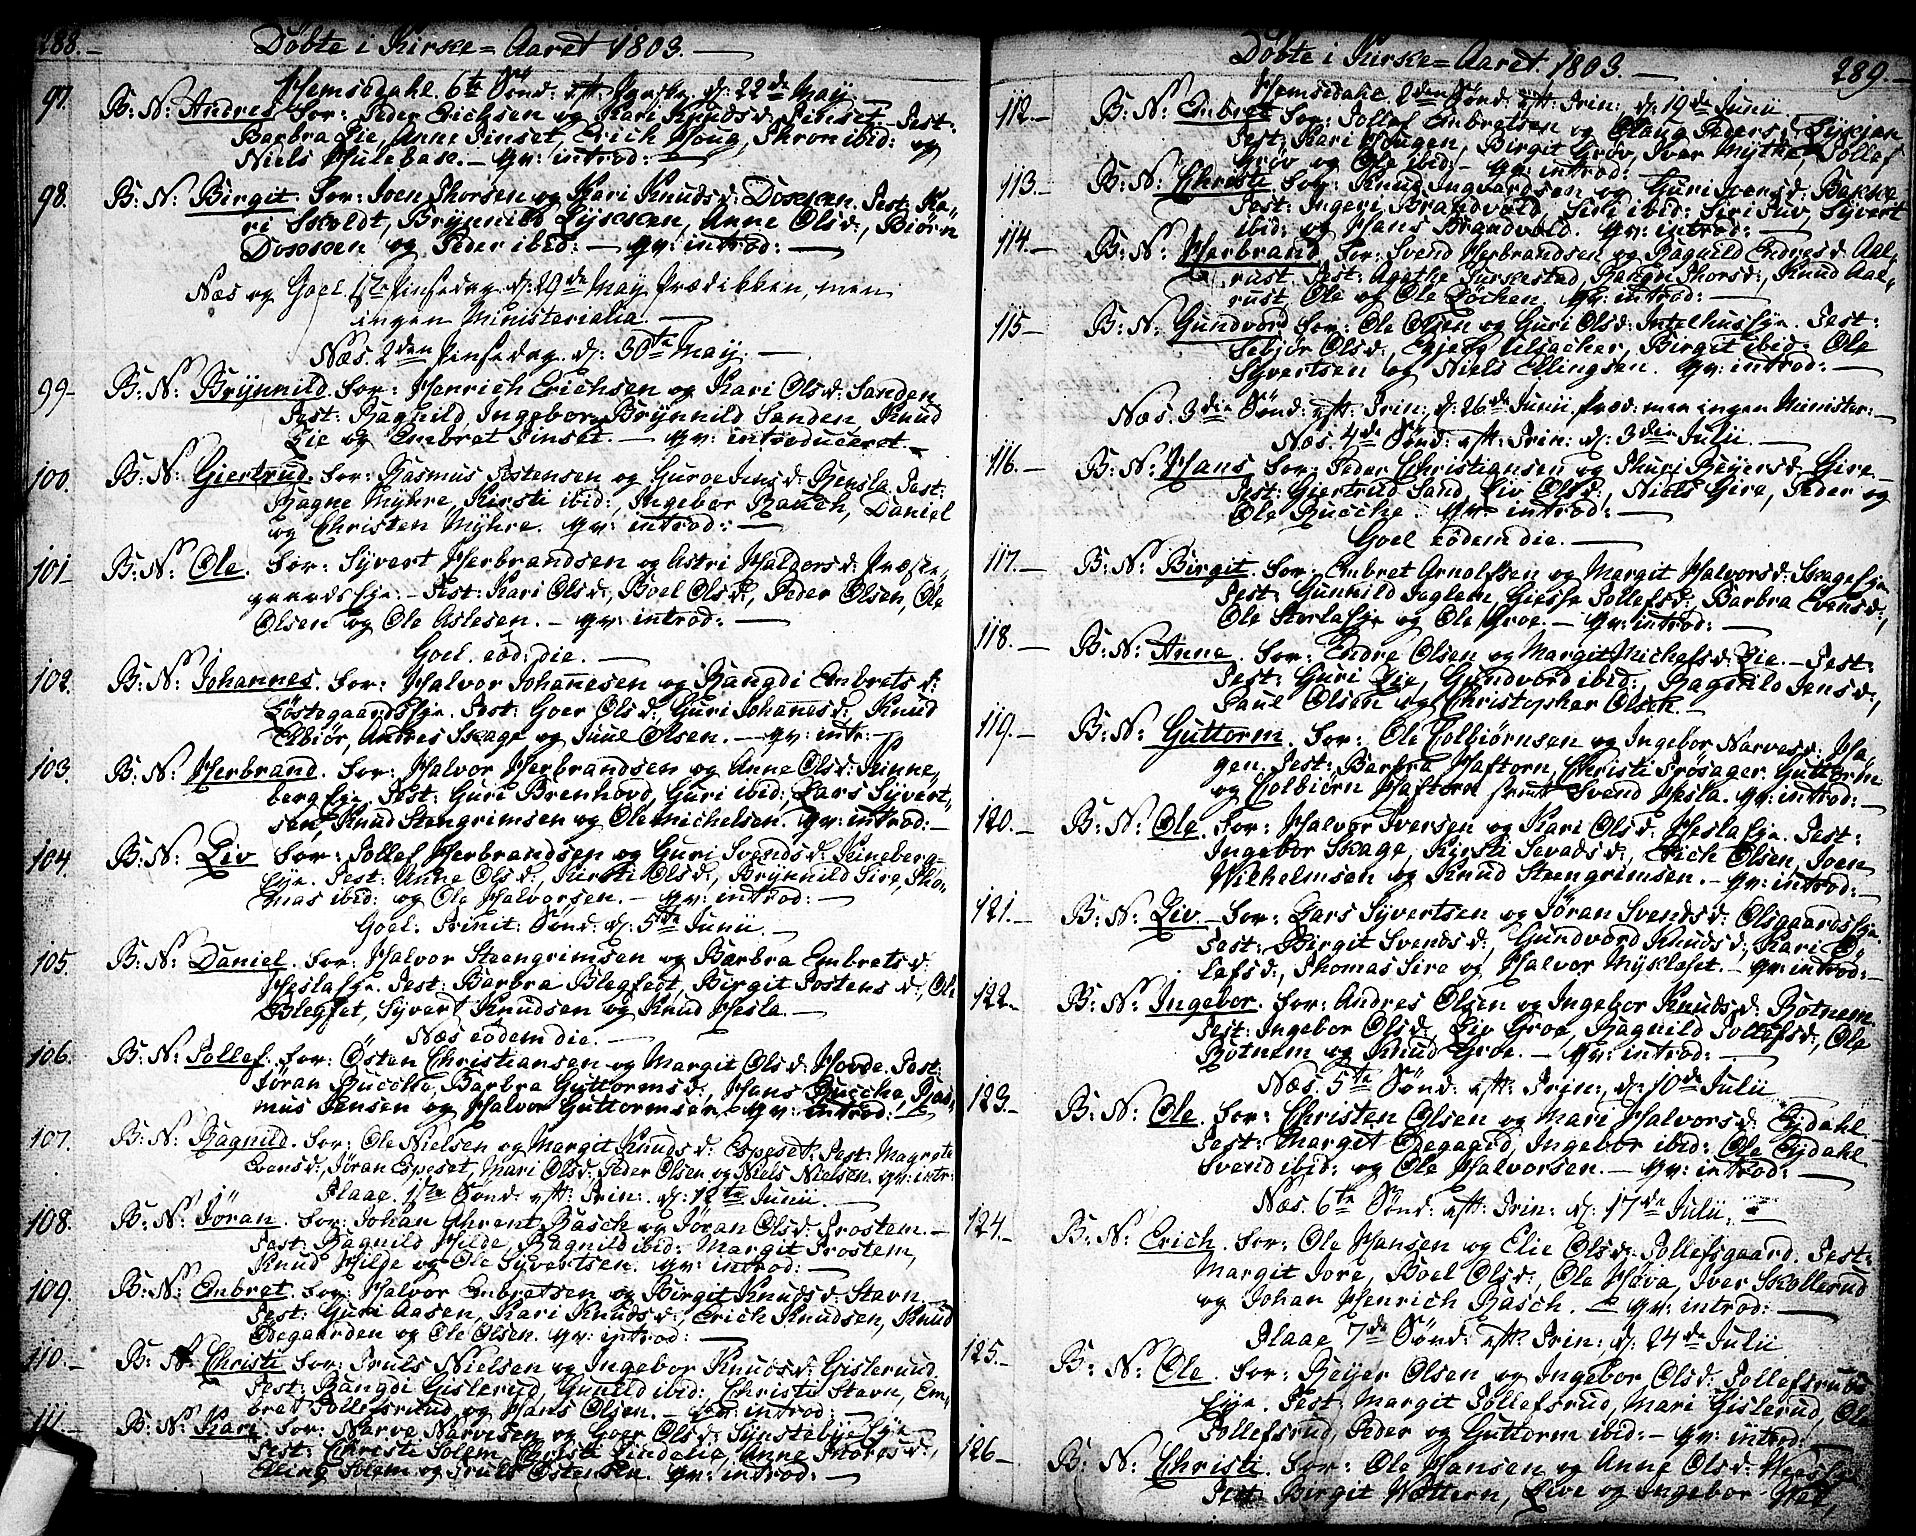 288.
Døbte i Kirke=Aaret 1803.
Hemsedahl 6te Sønd: eft: Paaske d: 22de May
97. B: N: Andres For: Peder Erichsen og Kari Knudsd: Tinset. Test:
Barbra Lie, Anne Tinset, Erich Houg, Thron ibid: og
Niels Hulebak. - qv: introd:
98. B: N: Birgit. For: Iven Thorsen og Kari Knudsd: Dokken. Test: Ka=
ri Skoldt, Brynnild Lykken, Anne Olsd:, Biørn
Dokken og Peder ibid: - qv: introd:
Næs og Goel 1ste Pinsedag d: 29de May Prædikken, men
ingen Ministerialia.
Næs. 2den Pinsedag. d: 30te May.
99. B: N: Brynnild. For: Henrich Erichsen og Kari Olsd: Sanden.
Test: Ragnild, Ingebor, Brynnild Sanden, Knud
Lie og Embret Tinset. - qv: introduceret.
100. B: N: Giertrud. For: Rasmus Østensen og Guroe Jensd: Rensla. Test:
Ragne Myhre, Kirsti ibid:, Ingebor Rauch, Daniel
og Christen Myhre. qv: introd:
101. B: N: Ole. For: Syvert Herbrandsen og Astri Halgersd: Præste=
gaardseje. - Test: Kari Olsd:, Boel Olsd:, Peder Olsen, Ole
Olsen og Ole Aslesen. - qv: introd:
Goel. eod: die.
102. B: N: Johannes. For: Halvor Johanesen og Rangdi Embretsd:
Løstegaardseje. Test: Goer Olsd:, Guri Johanesd:, Knud
Elbiør, Andres Skage og Juul Olsen. - qv: intr:
103. B: N: Herbrand. For: Halvor Herbrandsen og Anne Olsd: Kinne=
bergeje. Test: Guri Brenhovd, Guri ibid:, Lars Syvert=
sen, Knud Stengrimsen og Ole Michelsen. qv: introd:
104. B: N: Liv For: Tollef Herbrandsen og Guri Svendsd: Kineberg=
eje. Test: Anne Olsd:, Kirsti Olsd:, Brynnild Sire, Tho=
mas ibid: og Ole Halvorsen. - qv: introd:
Goel. Trinit: Sønd: d: 5te Junii.
105. B: N: Daniel. For: Halvor Steengrimsen og Barbra Embretsd:
Heslaeje. Test: Barbra Blegeet, Birgit Tostensd:, Ole
Blegeet, Syvert Knudsen og Knud Hesla.
Næs eodem die.
106. B: N: Tollef. For: Østen Christiansen og Margit Olsd: Hovde. Test:
Jøran Rucche, Barbra Guttormsd:, Hans Rucche, Ras=
mus Jensen og Halvor Guttormsen. qv: introd:
107. B: N: Ragnild. For: Ole Nielsen og Margit Knudsd: Espeset. Test: Magrete
Evensd:, Jøran Espeset, Mari Olsd:, Peder Olsen og Niels Nielsen. qv: intr:
Flaae. 1ste Sønd: eft: Trin: d: 12te Junii.
108. B: N: Jøran. For: Johan Ahrent Rasch og Jøran Olsd: Trostem.
Test: Ragnild Hilde, Ragnild ibid: Margit Trostem,
Knud Hilde og Ole Syvertsen. qv: introd:
109. B: N: Embret. For: Halvor Embretsen og Birgit Knudsd: Stavn.
Test: Guri Aasen, Kari Knudsd:, Erich Knudsen, Knud
Ødegaarden og Ole Olsen. qv: introd:
110. B: N: Christi For: Truls Nielsen og Ingebor Knudsd: Gislerud.
Test: Rangdi Gislerud, Gunild ibid:, Christi Stavn, Em=
bret Tollefsrud og Hans Olsen. - qv: introd:
111. B: N: Kari. For: Narve Narvesen og Goer Olsd: Synstebyeeje.
Test: Christi Solem, Christi Lindelie, Anne Thoresd:,
Elling Solem og Truls Østensen. qv: introd:
Døbte i Kirke=Aaret 1803. 289.
Hemsedahl 2den Sønd: eft: Trin: d: 19de Junii
112. B: N: Embret For: Tollef Embretsen og Olaug Pedersd: Lykjen
Test: Kari Hougen, Birgit Grøv, Iver Mythe, Tollef
Grøv og Ole ibid: - qv: introd:
113. B: N: Christi For: Knud Ingvardsen og Guri Ivensd: Bakke
Test: Ingeri Brandvold, Sidi ibid: Siri Juv, Syvert
ibid: og Hans Brandvold. qv: introd:
114. B: N: Herbrand For: Svend Herbrandsen og Ragnild Endresd: Aal=
rust. Test: Agathe Kirkestad, Ragne Thorsd:, Knud Aal=
rust, Ole og Ole Løchen. qv: introd:
115 B: N: Gundvord For: Ole Olsen og Guri Olsd: Intelhuseje. Test:
Sebjør Olsd:, Egjerg Ulsacher, Birgit ibid: Ole
Syvertsen og Niels Ellingsen. qv: introd:
Næs. 3die Sønd: eft: Trin: d: 26de Junii Præd: men ingen Minister:
Næs. 4de Sønd: eft: Trin: d: 3die Julii.
116. B: N: Hans For: Peder Christiansen og Thuri Reyersd: Gire.
Test: Giertrud Sand, Liv Olsd:, Niels Gire, Peder og
Ole Rucche. qv: introd:
Goel eodem die.
117. B: N: Birgit. For: Embret Arnolfsen og Margit Halvorsd: Skageeje
Test: Gunnild Teglem, Giese Tollefsd:, Barbra Evensd:,
Ole Storlaeje og Ole Groe. - qv: introd:
118. B: N: Anne. For: Endre Olsen og Margit Michelsd: Lie. - Test:
Test: Guri Lie, Gundvord ibid:, Ragnild Jensd:,
Paul Olsen og Christopher Olsen.
119. B: N: Guttorm. For: Ole Colbiørnsen og Ingebor Narvesd: Ha=
gen. Test: Barbra Haftorn, Christi Trøsager, Guttorm
og Colbiørn Haftorn samt Svend Hesla. qv: introd:
120. B: N: Ole For: Halvor Iversen og Kari Olsd: Heslaeje. Test:
Ingebor Skage, Kirsti Sevadsd:, Erich Olsen, Iven
Wilhelmsen og Knud Steengrimsen. - qv: introd:
121. B: N: Liv. - For: Lars Syvertsen og Jøran Svendsd: Olsgaardseje.
Test: Birgit Svendsd:, Gundvord Knudsd:, Kari O=
lafsd:, Thomas Sire og Halvor Myklaset. - qv: introd:
122. B: N: Ingebor. For: Andres Olsen og Ingebor Knudsd: Botnem.
Test: Ingebor Olsd:, Liv Groe, Ragnild Tollefsd:, Ole
Botnem og Knud Groe. - qv: introd:
Næs. 5te Sønd: eft: Trin:, d: 10de Julii
123. B: N: Ole. For: Christen Olsen og Mari Halvorsd: Eydahl
Test: Margit Ødegaard, Ingebor ibid: Ole Eydahl
Svend ibid: og Ole Halvorsen. - qv: introd:
Næs. 6te Sønd: eft: Trin: d: 17de Julii.
124. B: N: Erich. For: Ole Hansen og Elie Olsd: Tollefsgaard. Test:
Margit Jore, Boel Olsd:, Ole Høva, Iver Skollerud
og Johan Henrich Rasch. - qv: introd:
Flaae 7de Sønd: eft: Trin: d: 24de Julii
125. B: N: Ole For: Reyer Olsen og Ingebor Olsd: Tollefsruds
Eje. Test: Margit Tollefsrud, Mari Gislerud, Ole
Tollefsrud, Peder og Guttorm ibid: - qv: introd:
126 B: N: Christi. For: Ole Hansen og Anne Olsd:
Test: Birgit Wættern, Live og Ingebor